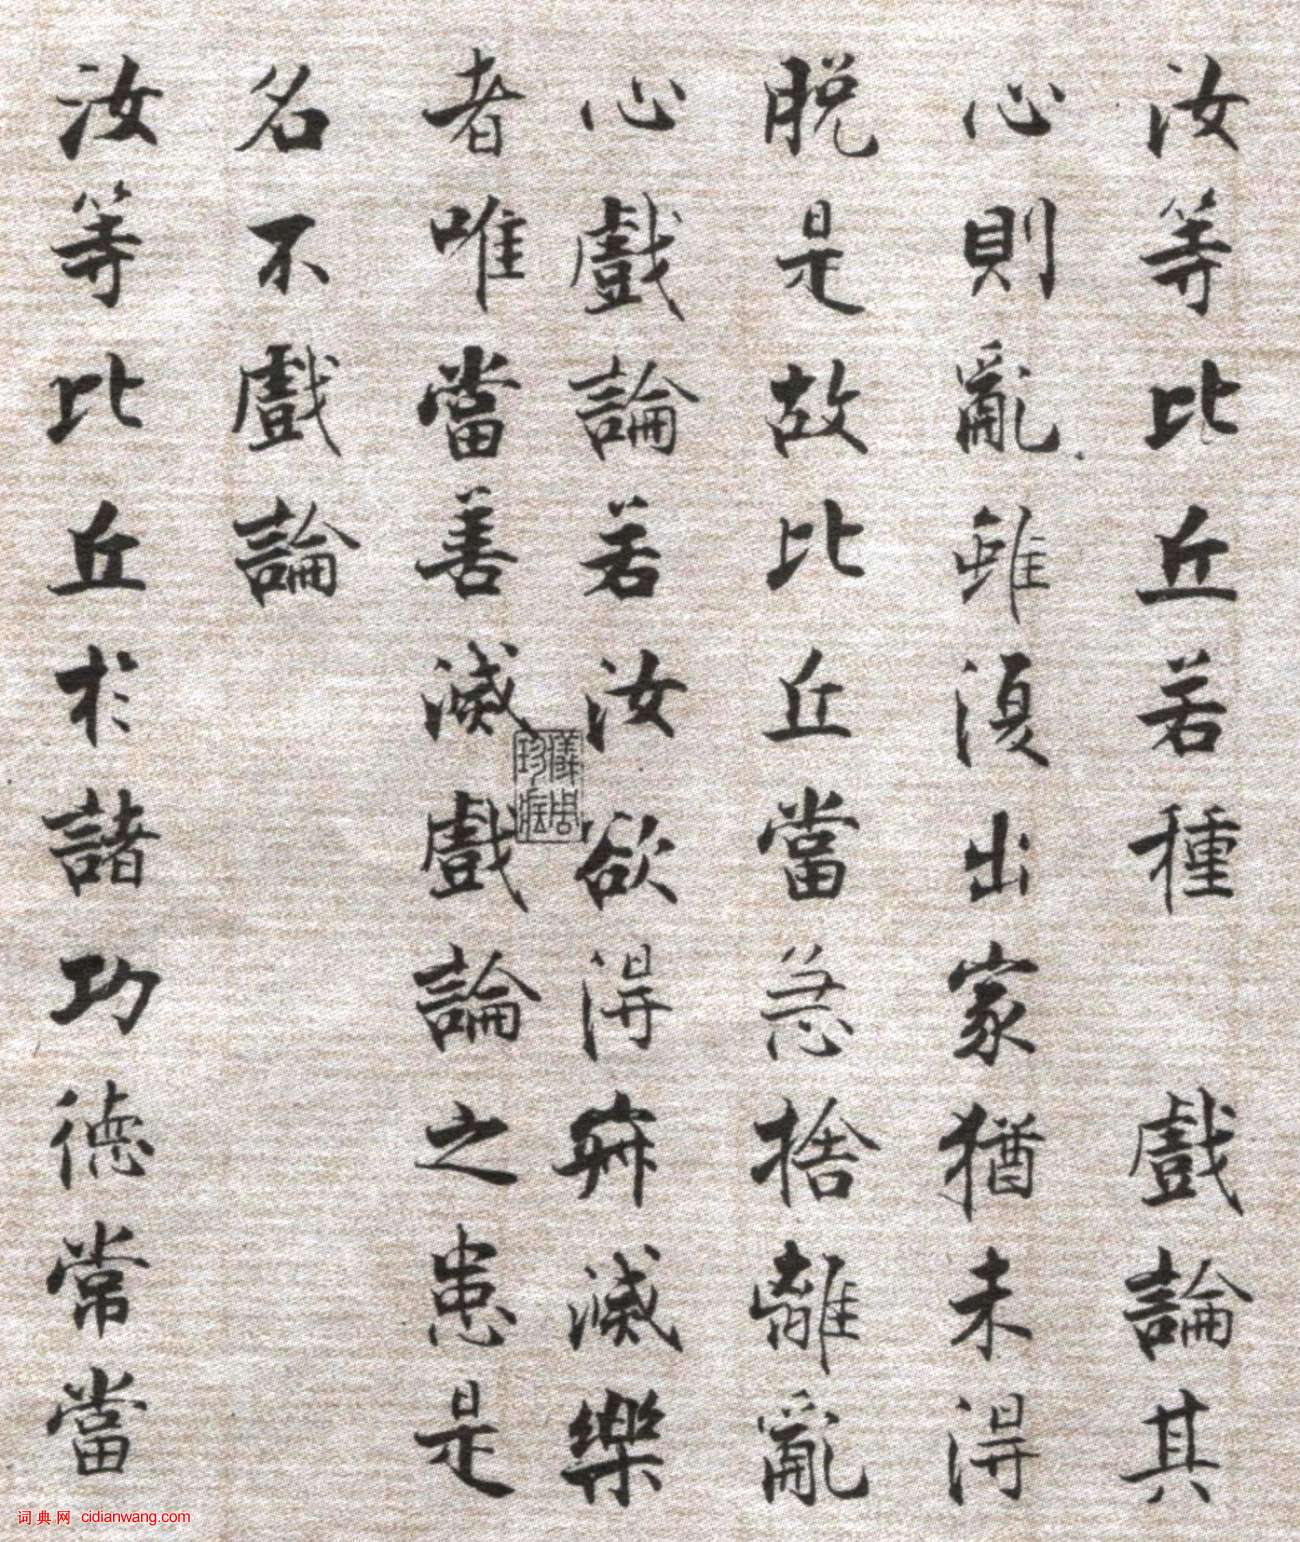 汝等比丘若種 戲論其
心則亂雖復出家猶未得
脫是故比丘當急捨離亂
心戲論若汝欲得寂滅樂
者唯當善滅戲論之患是
名不戲論
汝等比丘於諸功德常當
儀周珍藏
词典网 cidianwang.com